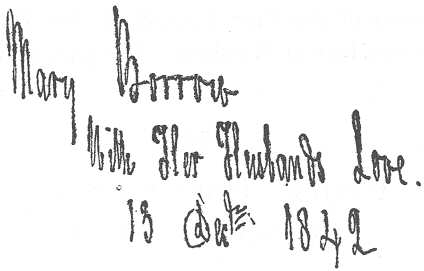 Mary Borrow
With Her Husbands Love.
13 Decbr. 1842